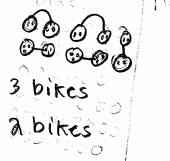 3 bikes
2 bikes